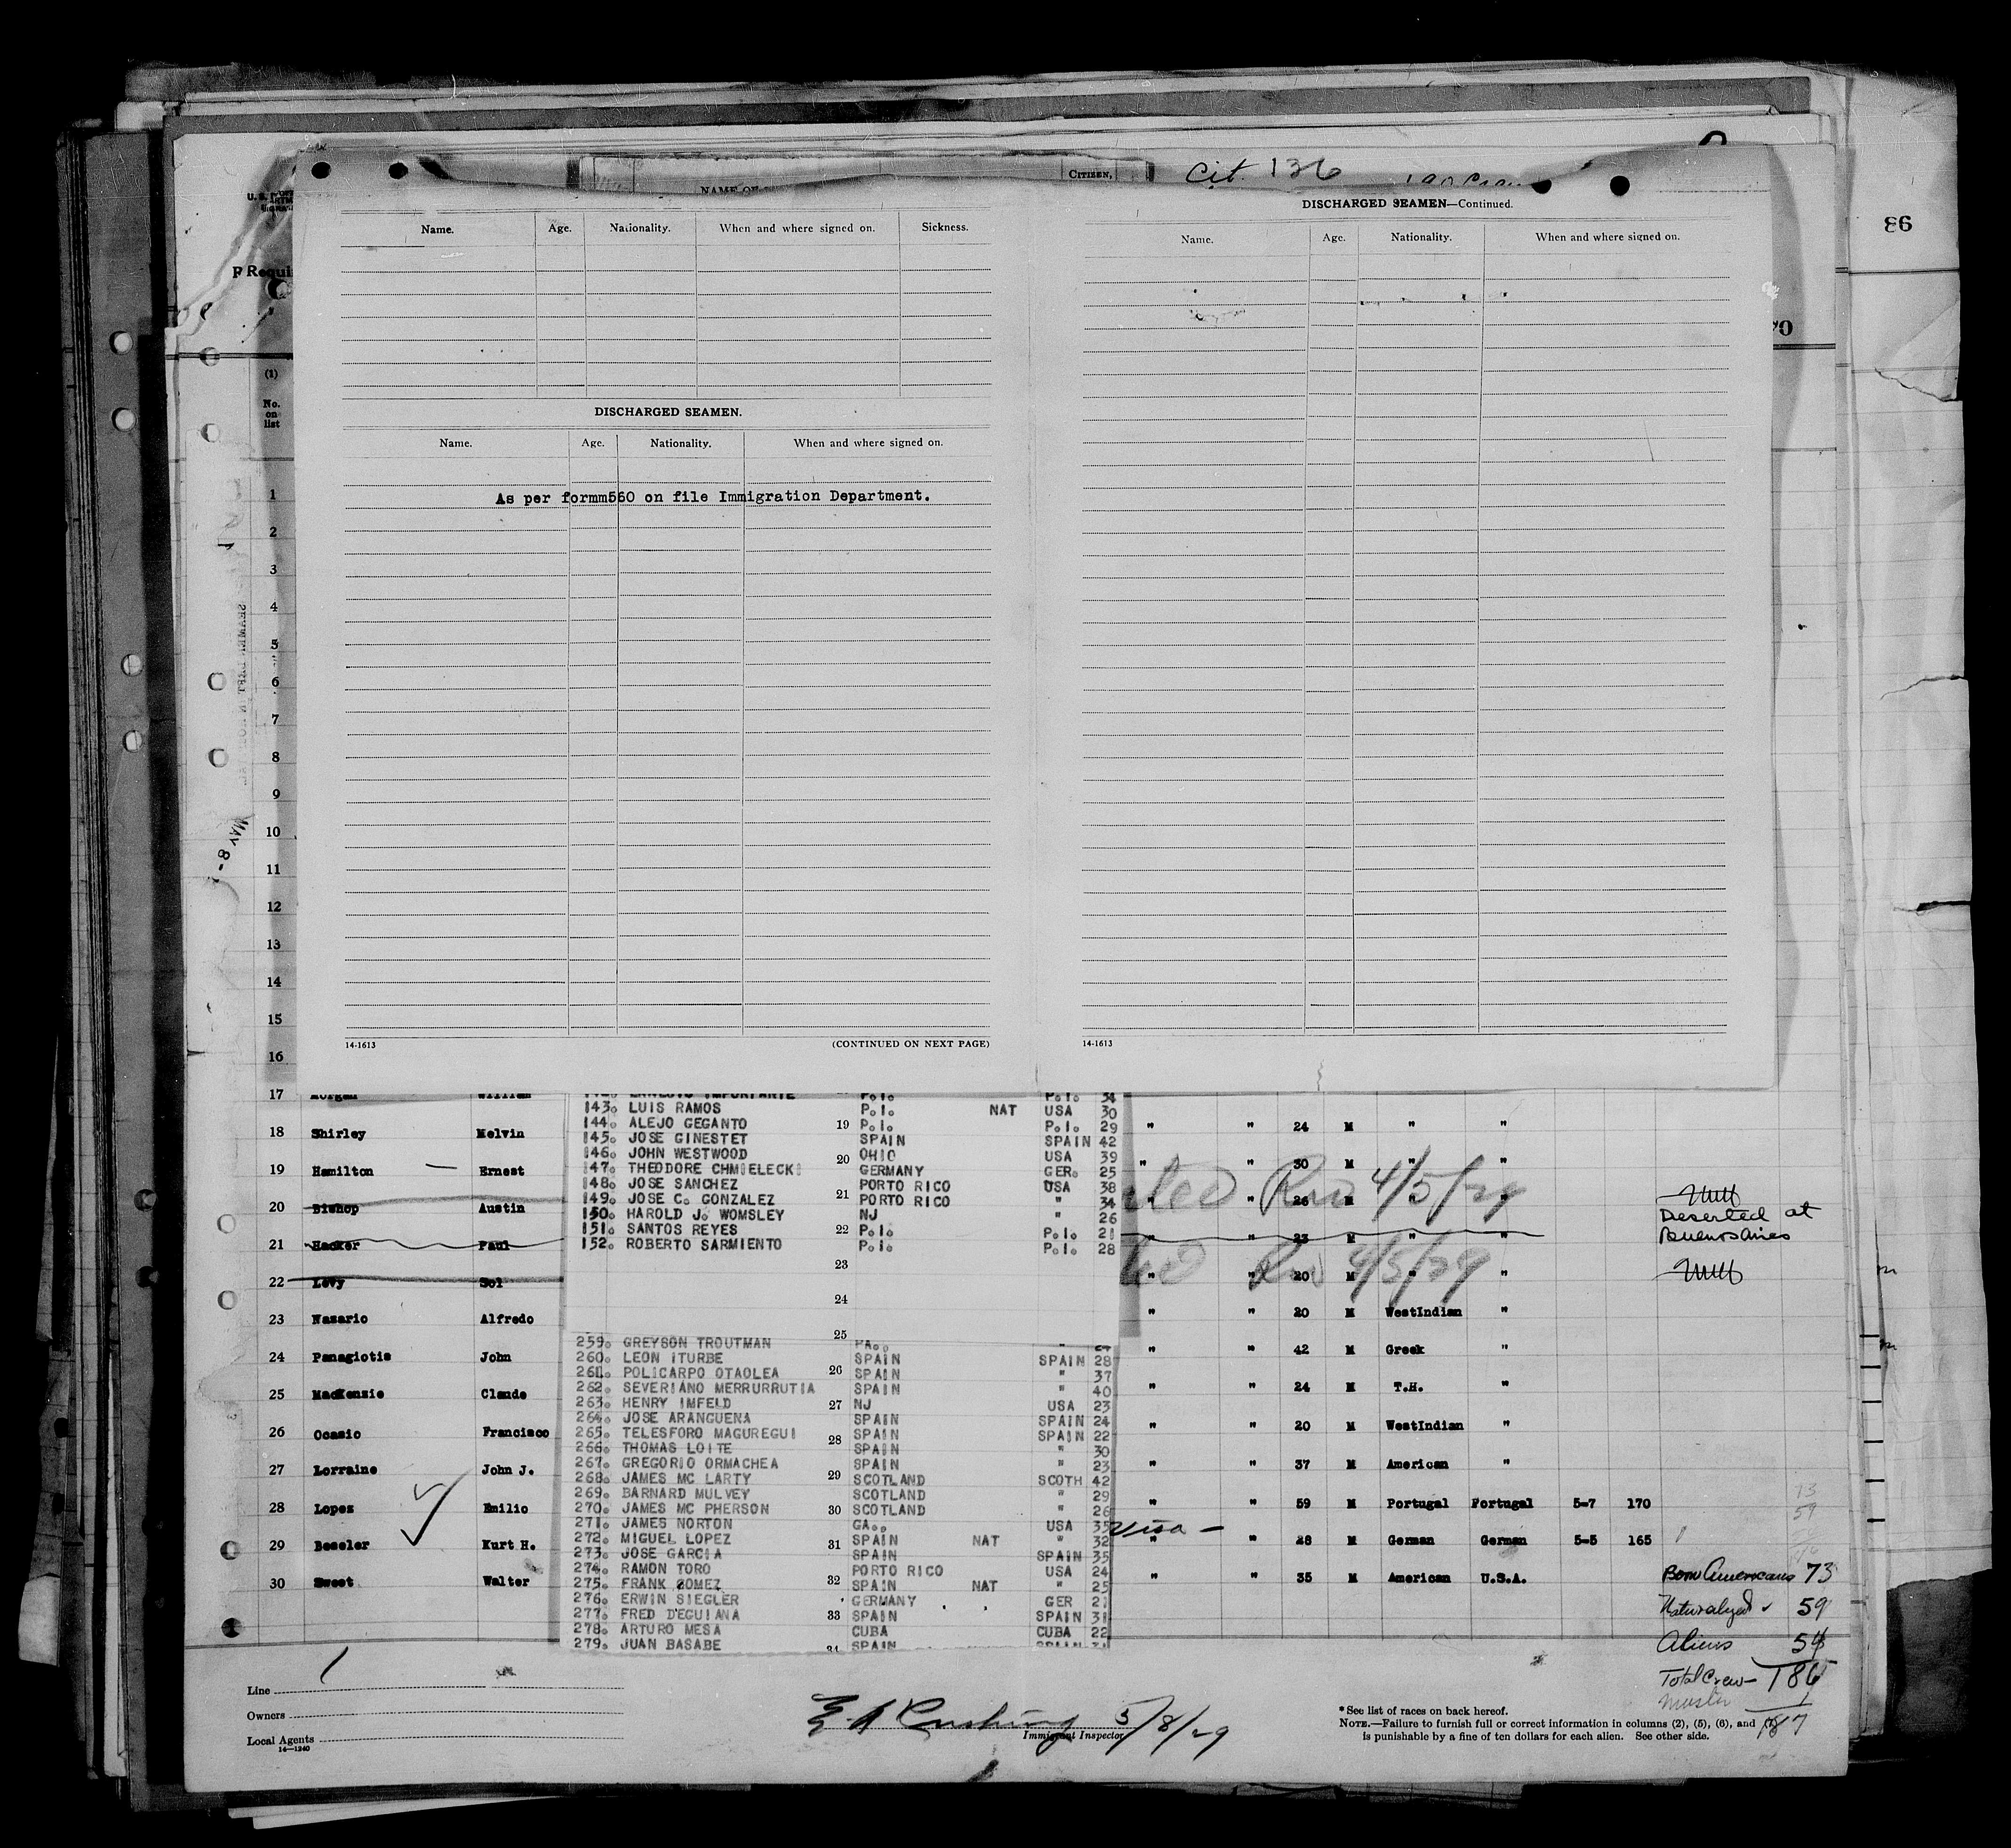 Cit. 136
CITIZEN,
NAME OF
DISCHARGED SEAMEN—Continued.
86
Name. Age. Nationality. When and where signed on. Sickness.
Name. Age. Nationality. When and where signed on.
(1)
No.
on
list
DISCHARGED SEAMEN.
Name. Age. Nationality. When and where signed on.
As per formm560 on file Immigration Department.
1
2
3
4
5
6
7
8
9
MAY 8-
10
11
12
13
14
15
14-1613 (CONTINUED ON NEXT PAGE) 14-1613
16
17 Morgan William
18 Shirley Melvin " " 24 M " "
19 Hamilton — Ernest " " 30 M " "
20 Bishop Austin " " 26 M " "
Rio 4/5/29
Deserted at
Buenos Aires
21 Hacker Paul " " 23 M " "
22 Levy Sol " " 20 M " "
Rio 4/5/29
23 Nazario Alfredo " " 20 M WestIndian "
24 Panagiotis John " " 42 M Greek "
25 MacKenzie Claude " " 24 M T.H. "
26 Ocasio Francisco " " 20 M WestIndian "
27 Lorraine John J. " " 37 M American "
28 Lopez Emilio " " 59 M Portugal Portugal 5-7 170
Visa —
29 Beseler Kurt H. " " 28 M German German 5-5 165
30 Sweet Walter " " 35 M American U.S.A.
ERNESTO IMPORTANTE P.I. P.I. 34
143. LUIS RAMOS P.I. NAT USA 30
144. ALEJO GEGANTO 19 P.I. P.I. 29
145. JOSE GINESTET SPAIN SPAIN 42
146. JOHN WESTWOOD 20 OHIO USA 39
147. THEODORE CHMIELECKI GERMANY GER. 25
148. JOSE SANCHEZ PORTO RICO USA 38
149. JOSE C. GONZALEZ 21 PORTO RICO " 34
150. HAROLD J. WOMSLEY NJ " 26
151. SANTOS REYES 22 P.I. P.I. 21
152. ROBERTO SARMIENTO P.I. P.I. 28
23
24
25
259. GREYSON TROUTMAN PA.. "
260. LEON ITURBE SPAIN SPAIN 28
261. POLICARPO OTAOLEA 26 SPAIN " 37
262. SEVERIANO MERRURRUTIA SPAIN " 40
263. HENRY IMFELD 27 NJ USA 23
264. JOSE ARANGUENA SPAIN SPAIN 24
265. TELESFORO MAGUREGUI 28 SPAIN SPAIN 22
266. THOMAS LOITE SPAIN " 30
267. GREGORIO ORMACHEA SPAIN " 23
268. JAMES MC LARTY 29 SCOTLAND SCOTH 42
269. BARNARD MULVEY SCOTLAND " 29
270. JAMES MC PHERSON 30 SCOTLAND " 26
271. JAMES NORTON GA.. USA 35
272. MIGUEL LOPEZ 31 SPAIN NAT " 32
273. JOSE GARCIA SPAIN SPAIN 35
274. RAMON TORO PORTO RICO USA 24
275. FRANK GOMEZ 32 SPAIN NAT " 25
276. ERWIN SIEGLER GERMANY GER 21
277. FRED D'EGUIANA 33 SPAIN SPAIN 31
278. ARTURO MESA CUBA CUBA 22
279. JUAN BASABE 34 SPAIN SPAIN
Born Americans 73
Naturalized 59
Aliens 54
Total Crew— 186
Master 1
187
Line
Owners
Local Agents
14—1240
5/8/29
Immigrant Inspector.
* See list of races on back hereof.
NOTE.—Failure to furnish full or correct information in columns (2), (5), (6), and
is punishable by a fine of ten dollars for each alien. See other side.